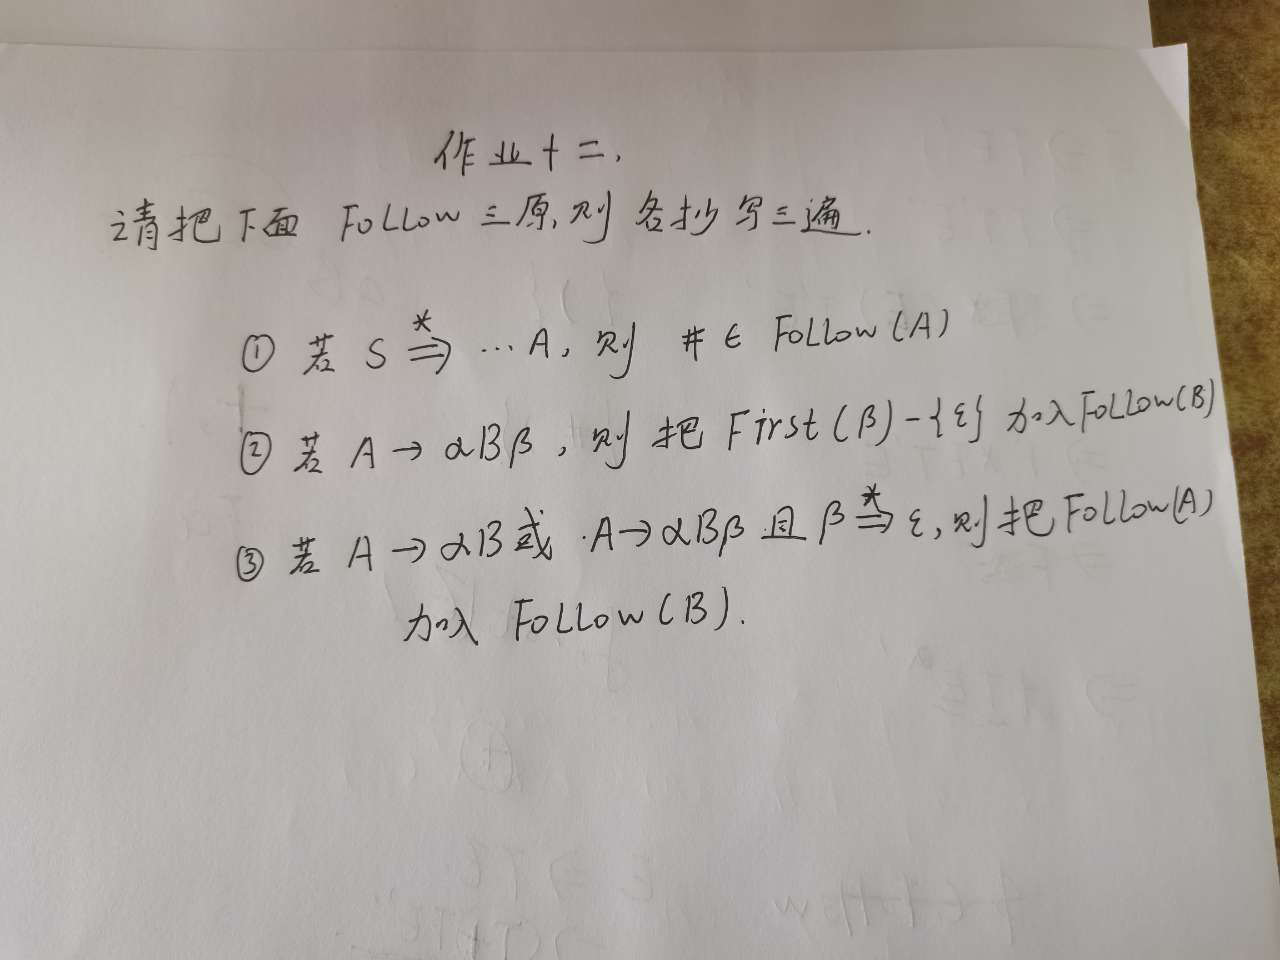 作业十二.
请把下面 Follow 三原则各抄写三遍.
① 若 S *⇒ …A, 则 # ∈ Follow(A)
② 若 A → αBβ, 则把 First(β)-{ε} 加入Follow(B)
③ 若 A → αB 或 A → αBβ 且 β *⇒ ε, 则把 Follow(A)
加入 Follow(B).